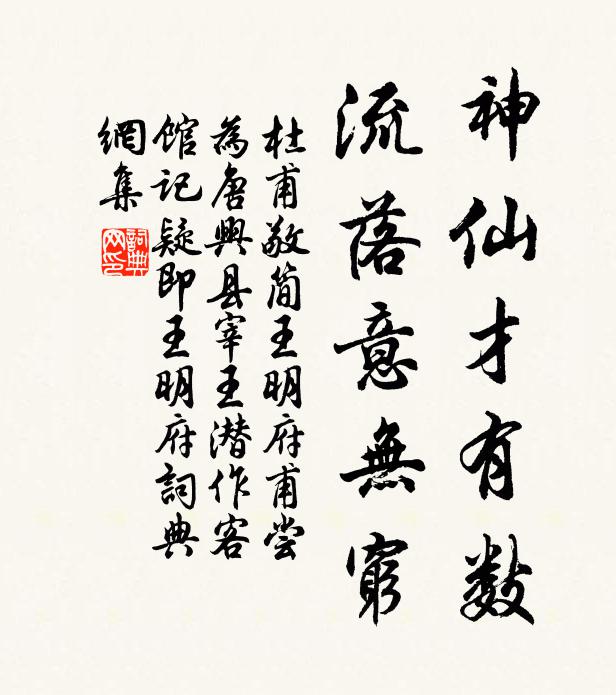 神仙才有数
流落意無窮
杜甫敬简王明府甫尝
為唐興县宰王潜作客
馆记疑即王明府詞典
網集
詞典網印